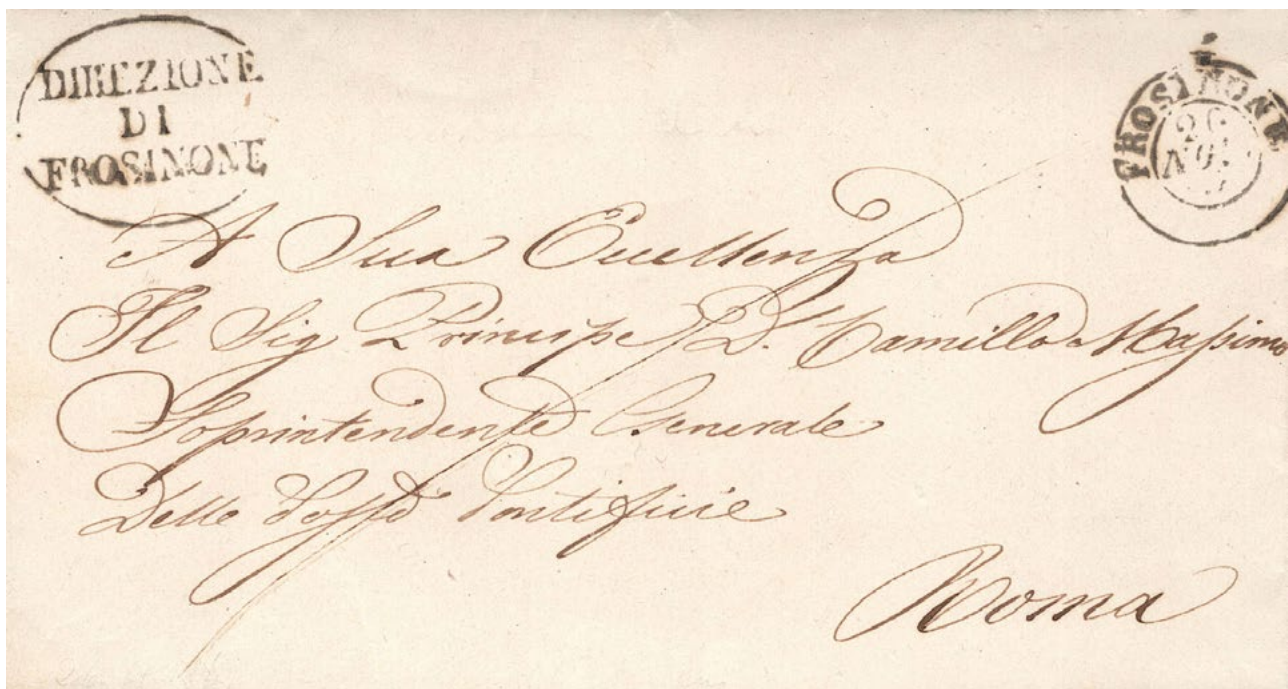 DIREZIONE
DI
FROSINONE
FROSINONE
26
A Sua Eccellenza
Il Sig Principe D. Camillo Massimo
Soprintendente Generale
Delle Poste Pontificie
Roma